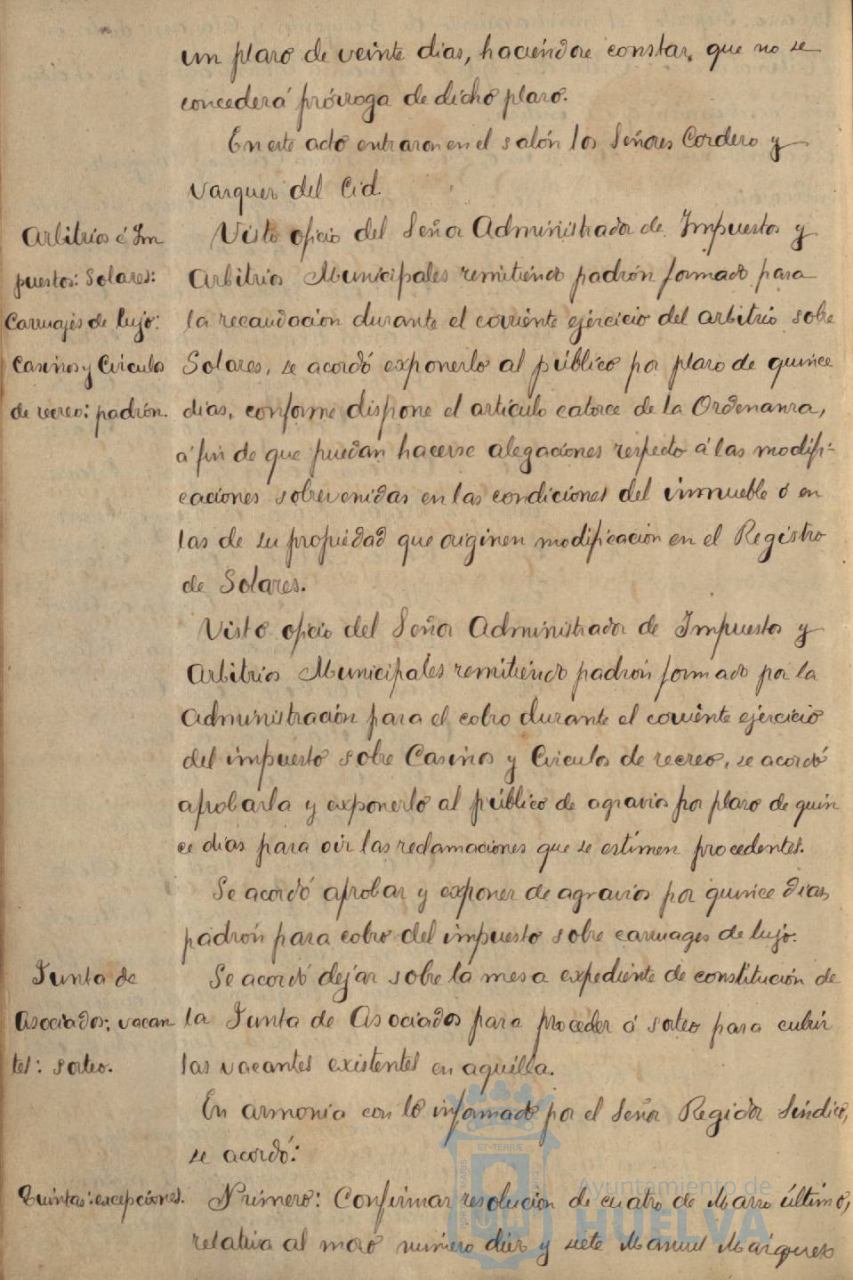 un plazo de veinte dias, haciéndose constar, que no se
concederá prórroga de dicho plazo.
En este acto entraron en el salón los Señores Cordero y
Vazquez del Cid.
Arbitrios é Im
puestos: Solares:
Carruajes de lujo:
Casinos y Circulos
de recreo: padrón.
Visto oficio del Señor Administrador de Impuestos y
Arbitrios Municipales remitiendo padrón formado para
la recaudación durante el corriente ejercicio del arbitrio sobre
Solares, se acordó exponerlo al público por plazo de quince
dias, conforme dispone el artículo catorce de la Ordenanza,
á fin de que puedan hacerse alegaciones respecto á las modifi-
caciones sobrevenidas en las condiciones del inmueble ó en
las de su propiedad que originen modificación en el Registro
de Solares.
Visto oficio del Señor Administrador de Impuestos y
Arbitrios Municipales remitiendo padrón formado por la
Administración para el cobro durante el corriente ejercicio
del impuesto sobre Casinos y Circulos de recreo, se acordó
aprobarla y exponerlo al público de agravios por plazo de quin
ce dias para oir las reclamaciones que se estimen procedentes.
Se acordó aprobar y exponer de agravios por quince dias
padrón para cobro del impuesto sobre carruages de lujo.
Junta de
Asociados; vacan
tes: sorteo.
Se acordó dejar sobre la mesa expediente de constitución de
la Junta de Asociados para proceder á sorteo para cubrir
las vacantes existentes en aquélla.
En armonia con lo informado por el Señor Regidor Sindico,
se acordó:
Quintas: excepciones.
Primero: Confirmar resolución de cuatro de Marzo último,
relativa al mozo número diez y siete Manuel Márquez
Ayuntamiento de
HUELVA